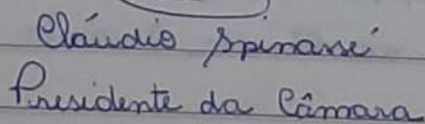 Cláudio Spinassé
Presidente da Câmara